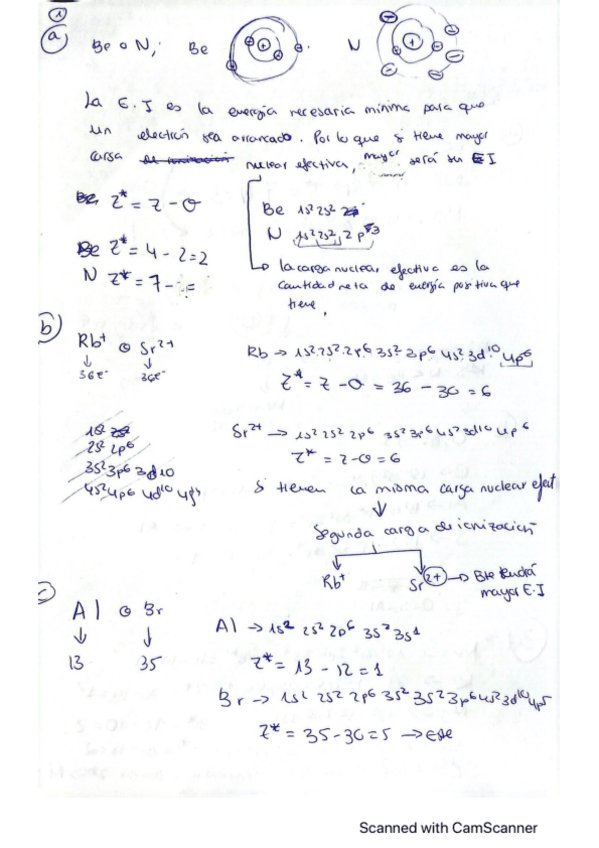 1
a) Be o N, Be + N +
La E.I es la energía necesaria mínima para que
un electrón sea arrancado. Por lo que si tiene mayor
carga de ionización nuclear efectiva, mayor será su EI
Z* = Z - σ
Be Z* = 4 - 2 = 2
N Z* = 7 - =
Be 1s² 2s²
N 1s² 2s², 2p³
la carga nuclear efectiva es la
cantidad neta de energía positiva que
tiene,
b)
Rb⁺ o Sr²⁺
36e⁻ 36e⁻
Rb → 1s² 2s² 2p⁶ 3s² 3p⁶ 4s² 3d¹⁰ 4p⁶
Z* = Z - σ = 36 - 30 = 6
1s²
2s² 2p⁶
3s² 3p⁶ 3d10
4s² 4p⁶ 4d¹⁰ 4f¹⁴
Sr²⁺ → 1s² 2s² 2p⁶ 3s² 3p⁶ 4s² 3d¹⁰ 4p⁶
Z* = Z - σ = 6
si tienen la misma carga nuclear efect
Segunda carga de ionización
Rb⁺ Sr²⁺ → Este tendrá
mayor E.I
c)
Al o Br
13 35
Al → 1s² 2s² 2p⁶ 3s² 3s1
Z* = 13 - 12 = 1
Br → 1s² 2s² 2p⁶ 3s² 3s² 3p⁶ 4s² 3d¹⁰ 4p5
Z* = 35 - 30 = 5 → Este
Scanned with CamScanner